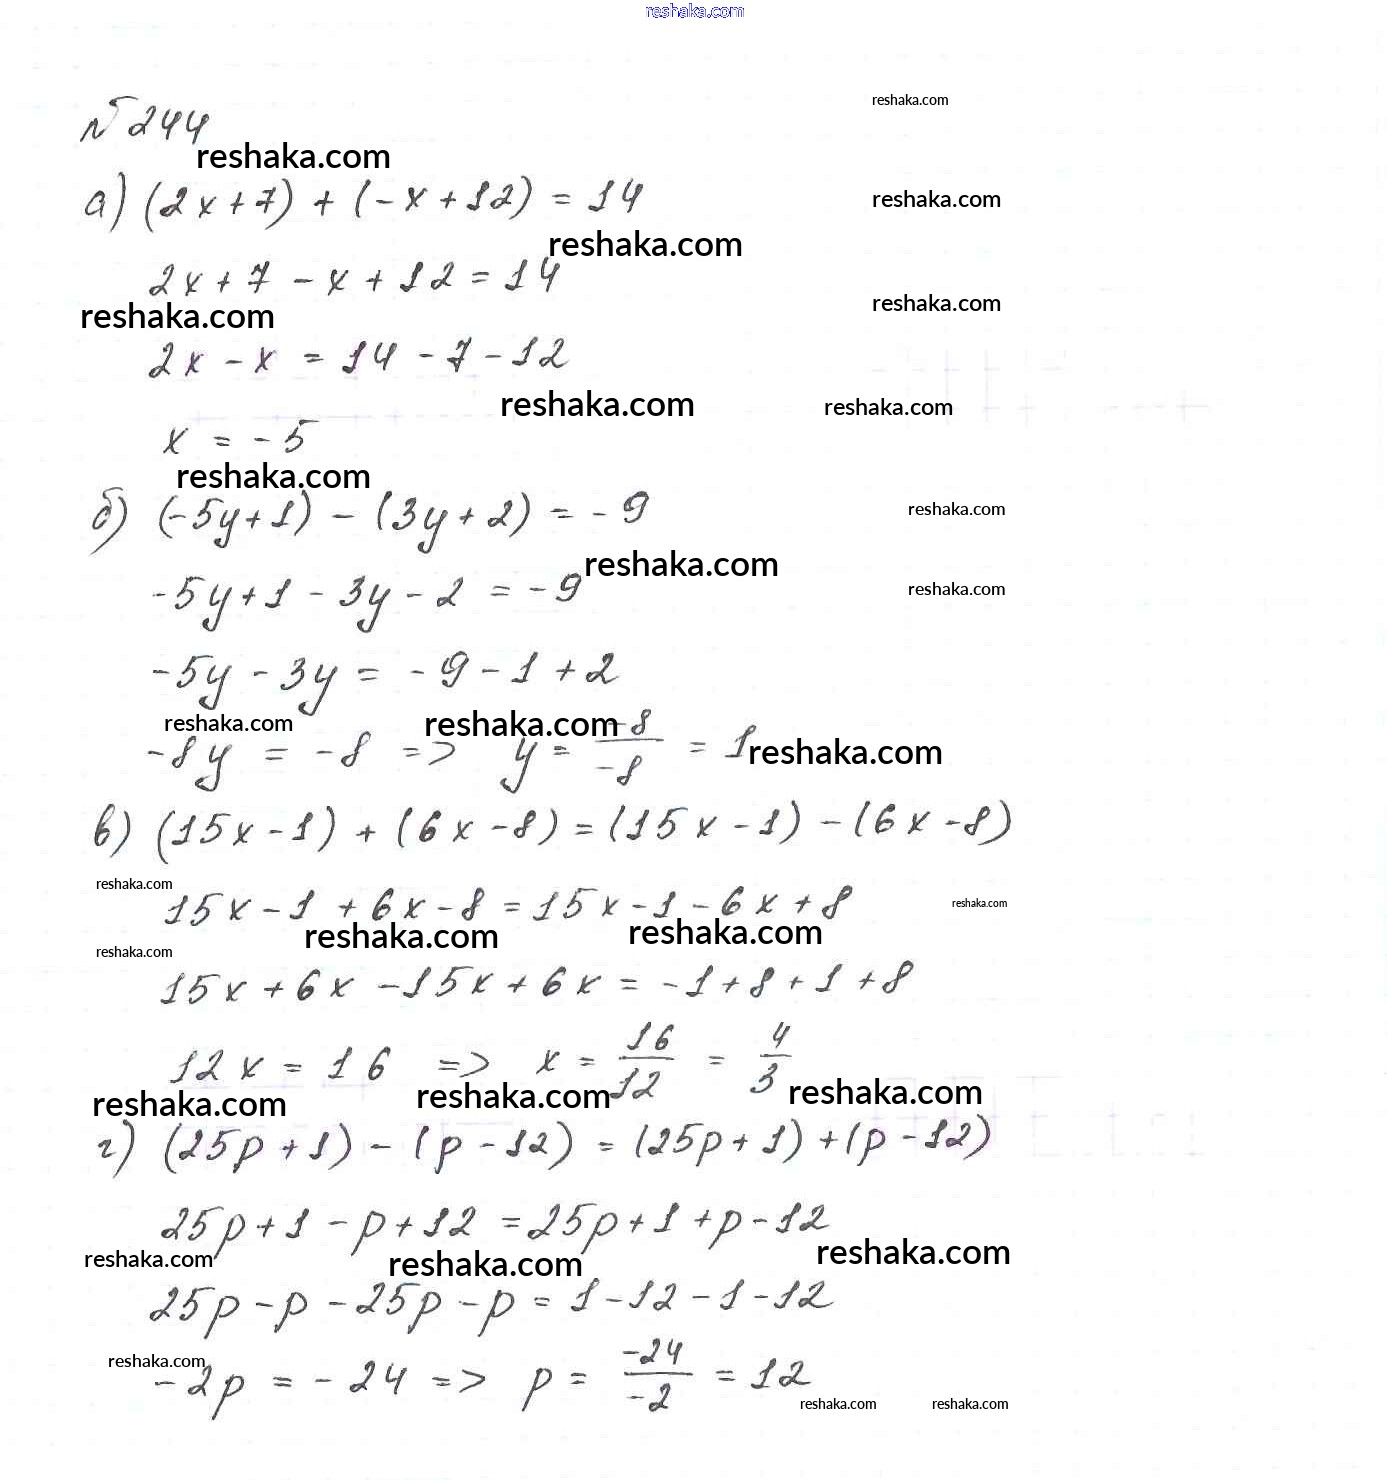 reshaka.com
№ 244
reshaka.com
reshaka.com
а) (2x+7) + (-x+12) = 14
reshaka.com
reshaka.com
2x+7 - x+12 = 14
reshaka.com
reshaka.com
2x - x = 14 - 7 - 12
reshaka.com
reshaka.com
x = -5
reshaka.com
б) (-5y+1) - (3y+2) = -9
reshaka.com
reshaka.com
-5y+1 - 3y - 2 = -9
reshaka.com
-5y - 3y = -9 - 1 + 2
reshaka.com
reshaka.com
-8y = -8 => y = -8/-8 = 1
reshaka.com
в) (15x-1) + (6x-8) = (15x-1) - (6x-8)
reshaka.com
15x-1 + 6x-8 = 15x-1-6x+8
reshaka.com
reshaka.com
reshaka.com
reshaka.com
15x+6x-15x+6x = -1+8+1+8
12x = 16 => x = 16/12 = 4/3
reshaka.com
reshaka.com
reshaka.com
г) (25p+1) - (p-12) = (25p+1) + (p-12)
25p+1-p+12 = 25p+1+p-12
reshaka.com
reshaka.com
reshaka.com
25p-p-25p-p = 1-12-1-12
reshaka.com
-2p = -24 => p = -24/-2 = 12
reshaka.com
reshaka.com